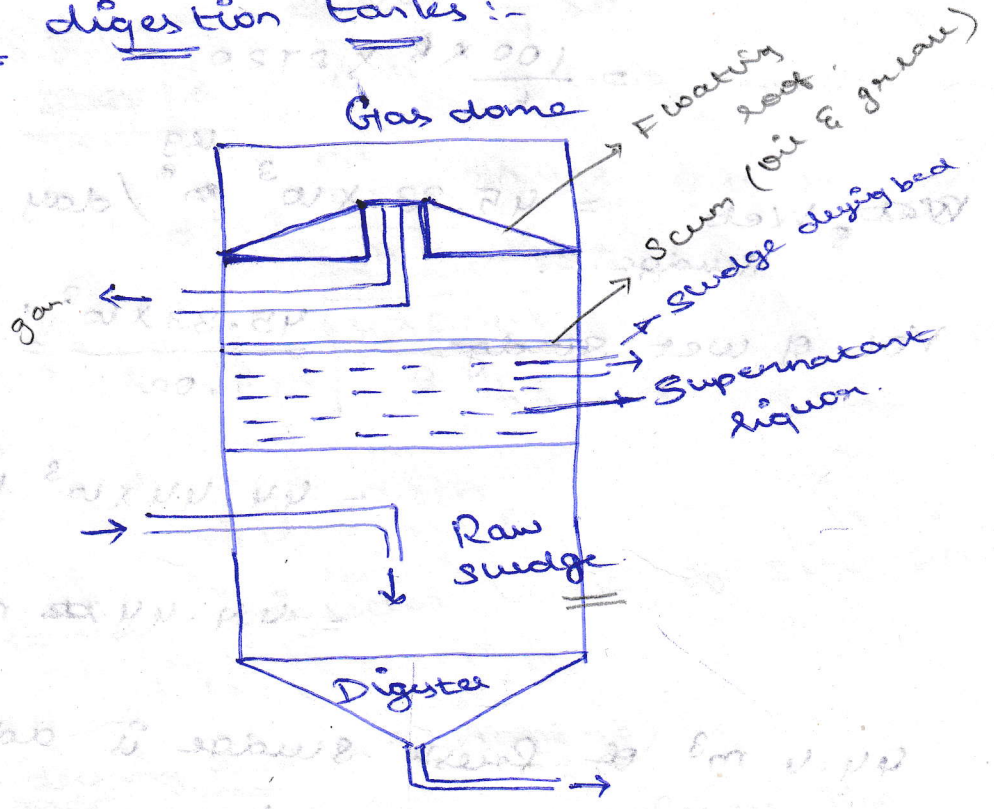 digestion tanks:-
Gas dome
Floating
roof.
Scum (oil & grease)
Sludge drying bed
gas.
Supernatant
liquor.
Raw
sludge
Digester